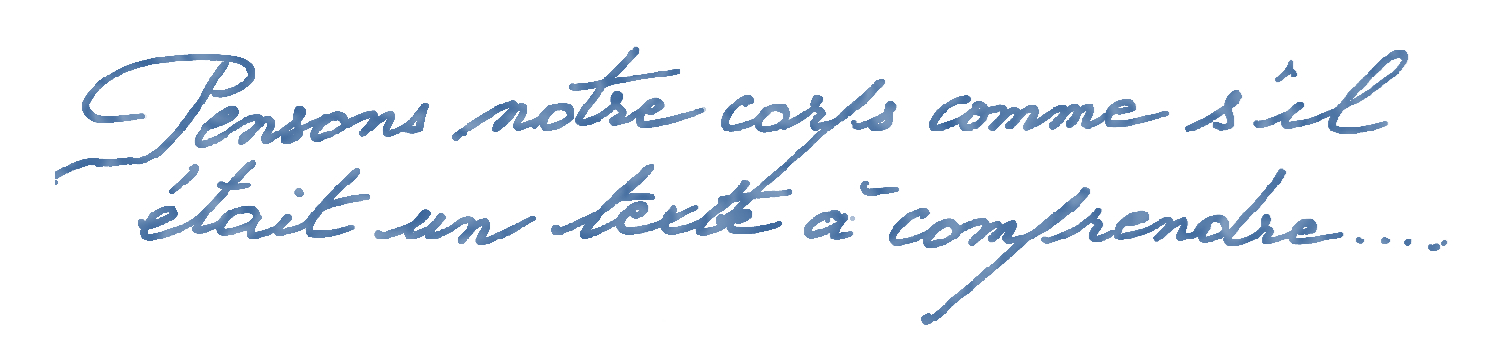 Pensons notre corps comme s'il
était un texte à comprendre....